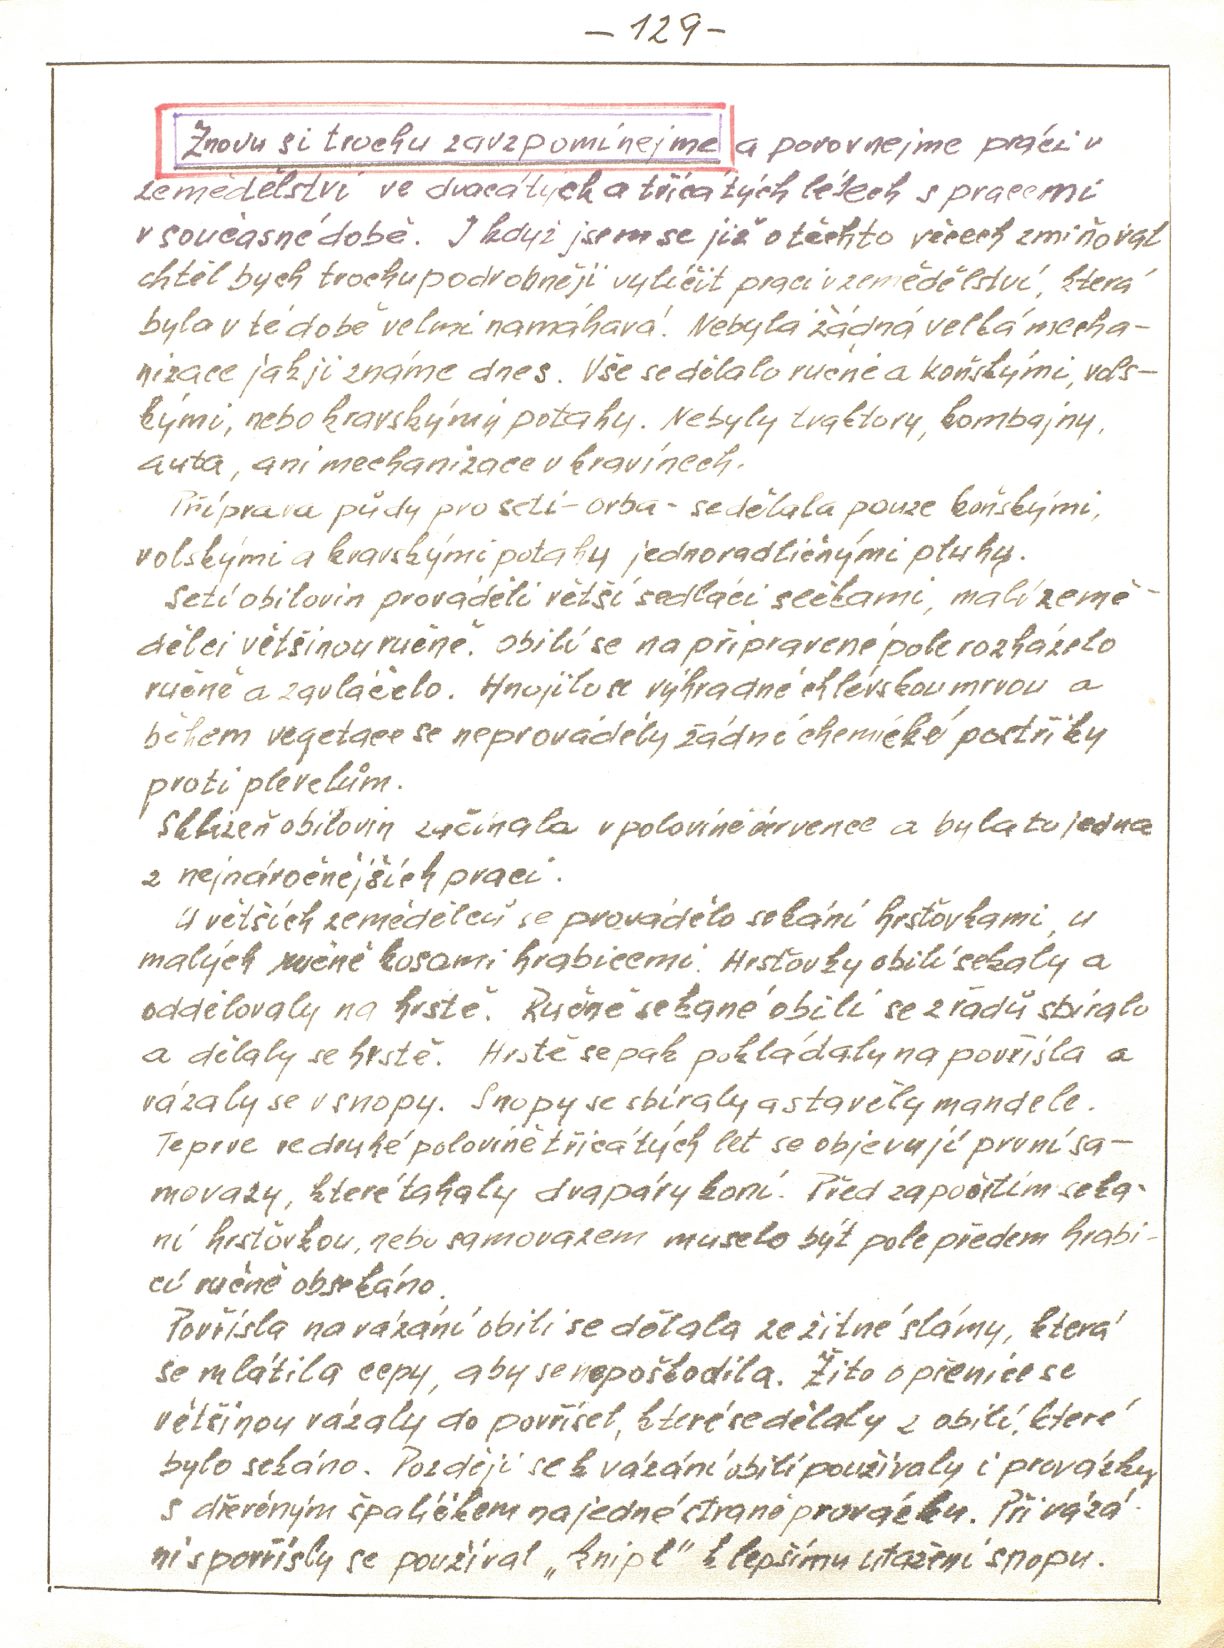 – 129 –
Znovu si trochu zavzpomínejme a porovnejme práci v
zemědělství ve dvacátých a třicátých létech s pracemi
v současné době. I když jsem se již o těchto věcech zmiňoval
chtěl bych trochu podrobněji vylíčit praci v zemědělství, která
byla v té době velmi namáhavá. Nebyla žádná velká mecha–
nizace jak ji známe dnes. Vše se dělalo ručně a koňskými, vols–
kými, nebo kravskými potahy. Nebyly traktory, kombajny,
auta, ani mechanizace v kravínech.
Příprava půdy pro setí – orba – se dělala pouze koňskými,
volskými a kravskými potahy jednoradličnými pluhy.
Setí obilovin prováděli větší sedláci sečkami, malí země–
dělci většinou ručně. Obilí se na připravené pole rozházelo
ručně a zavláčelo. Hnojilo se výhradně chlévskou mrvou a
během vegetace se neprováděly žádné chemické postřiky
proti plevelům.
Sklizeň obilovin začínala v polovině července a byla to jedna
z nejnáročnějších prací.
U větších zemědělců se provádělo sekání hrsťovkami, u
malých ručně kosami hrabicemi. Hrsťovky obilí sekaly a
oddělovaly na hrstě. Ručně sekané obilí se z řadů sbíralo
a dělaly se hrstě. Hrstě se pak pokládaly na povřísla a
vázaly se v snopy. Snopy se sbíraly a stavěly mandele.
Teprve ve druhé polovině třicátých let se objevují první sa–
movazy, které tahaly dva páry koní. Před započetím seká–
ní hrsťovkou, nebo samovazem muselo být pole předem hrabi–
cí ručně obsekáno.
Povřísla na vázání obilí se dělala ze žitné slámy, která
se mlátila cepy, aby se nepoškodila. Žito a pšenice se
většinou vázaly do povřísel, které se dělaly z obilí, které
bylo sekáno. Později se k vázání obilí používaly i provázky
s dřevěným špalíčkem na jedné straně provázku. Při vázá–
ní s povřísly se používal „knipl" k lepšímu utažení snopu.